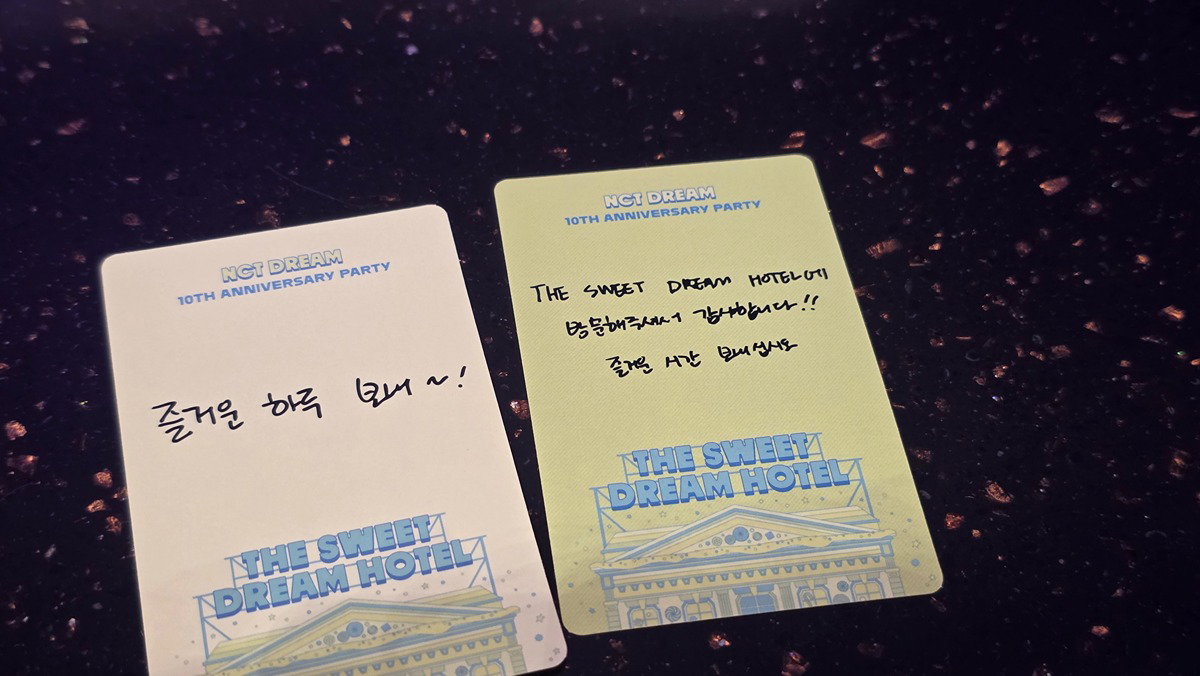 NCT DREAM
10TH ANNIVERSARY PARTY
즐거운 하루 보내~!
THE SWEET
DREAM HOTEL
NCT DREAM
10TH ANNIVERSARY PARTY
THE SWEET DREAM HOTEL에
방문해주셔서 감사합니다!!
즐거운 시간 보내십시오
THE SWEET
DREAM HOTEL